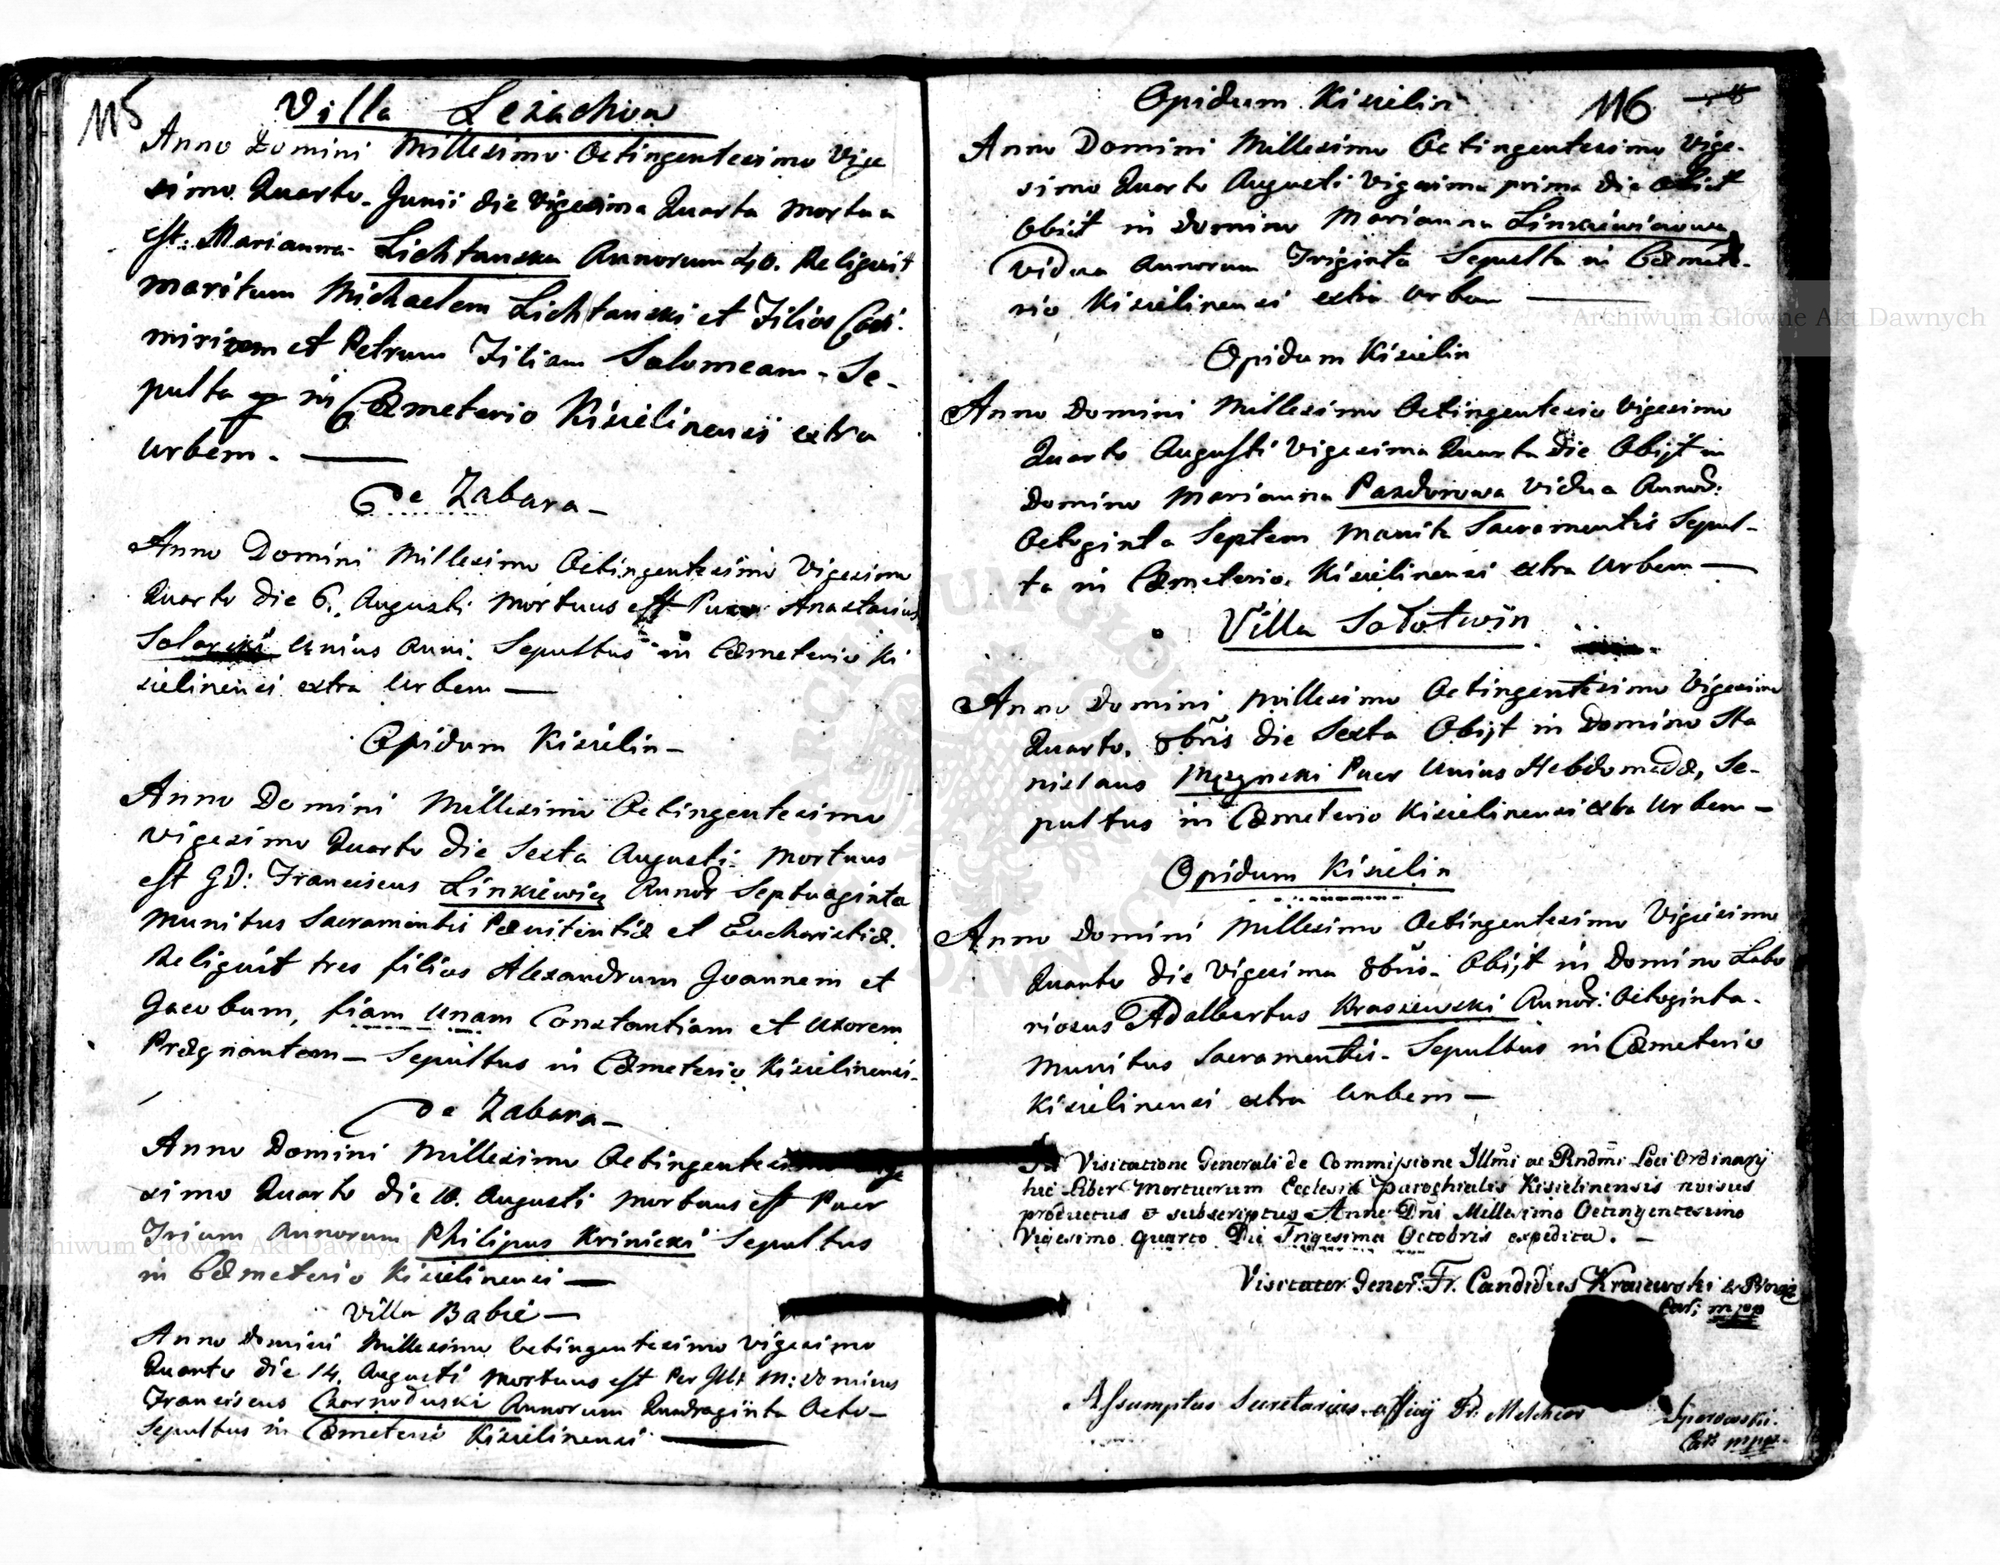 115
Villa Leziachow
Anno Domini Millesimo Octingentesimo Vige
simo Quarto. Junii die Vigesima Quarta mortua
est. Marianna Lichtanska Annorum 40. Reliquit
maritum Michaelem Lichtanski et Filios Casi.
mirum et Petrum Filiam Salomeam - Se-
pulta in Cœmeterio Kisielinensi extra
urbem. —
De Zabara -
Anno Domini Millesimo Octingentesimo Vigesimo
Quarto die 6. Augusti mortuus est Puer Anastasius
Solarski unius anni. Sepultus in Cœmeterio Ki
sielinensi extra urbem —
Opidum Kisielin -
Anno Domini Millesimo Octingentesimo
Vigesimo Quarto die Sexta Augusti. Mortuus
est GD: Franciscus Linkiewicz Annor Septuaginta
munitus Sacramentis Pœnitentiæ et Eucharistiæ.
Reliquit tres filios Alexandrum Joannem et
Jacobum, fiam Unam Constantiam et uxorem
Prægnantem - Sepultus in Cœmeterio Kisielinensi.
De Zabara -
Anno Domini Millesimo Octingentesimo Vige
simo Quarto die 10. Augusti mortuus est Puer
Trium Annorum Philipus Krinicki Sepultus
in Cœmeterio Kisielinensi —
Villa Babie -
Anno Domini Millesimo Octingentesimo Vigesimo
Quarto die 14. Augusti mortuus est Per Ill: M: Dominus
Franciscus Czarnoduski Annorum Quadraginta Octo -
Sepultus in Cœmeterio Kisielinensi —
Opidum Kisielin 116
Anno Domini Millesimo Octingentesimo Vige-
simo Quarto Augusti Vigesima prima die obiit
Obiit in Domino Marianna Linkiewiczowa
Vidua Annorum Triginta Sepulta in Cœmete-
rio Kisielinensi extra urbem —
Opidum Kisielin
Anno Domini Millesimo Octingentesio Vigesimo
Quarto Augusti Vigesima Quarta die Obijt in
Domino Marianna Pazdorowa Vidua Annor:
Octoginta Septem munita Sacramentis Sepul-
ta in Cœmeterio. Kisielinensi extra Urbem —
Villa Sołotwin
Anno Domini Millesimo Octingentesimo Vigesimo
Quarto. 8bris die Sexta Obijt in Domino Sta
nislaus Męzynski Puer Unius Hebdomadæ, Se-
pultus in Cœmeterio Kisielinensi extra Urbem -
Opidum Kisielin
Anno Domini Millesimo Octingentesimo Vigesimo
Quarto die Vigesima 8bris. Obijt in Domino Labo
riosus Adalbertus Kraszewski Annor: Octoginta.
Munitus Sacramentis. Sepultus in Cœmeterio
Kisielinensi extra Urbem —
In Visitatione Generali de Commissione Illmi ac Rndmi Loci Ordinarij
hic Liber Mortuorum Ecclesiæ Parochialis Kisielinensis revisus
productus & subscriptus Anno Dni Millesimo Octingentesimo
Vigesimo quarto Die Trigesima Octobris expedita. —
Visitator Gener: Fr. Candidus Kraiewski
mpp
Assumptus Secretarius officij Fr. Melchior
mpp
Archiwum Główne Akt Dawnych
Archiwum Główne Akt Dawnych